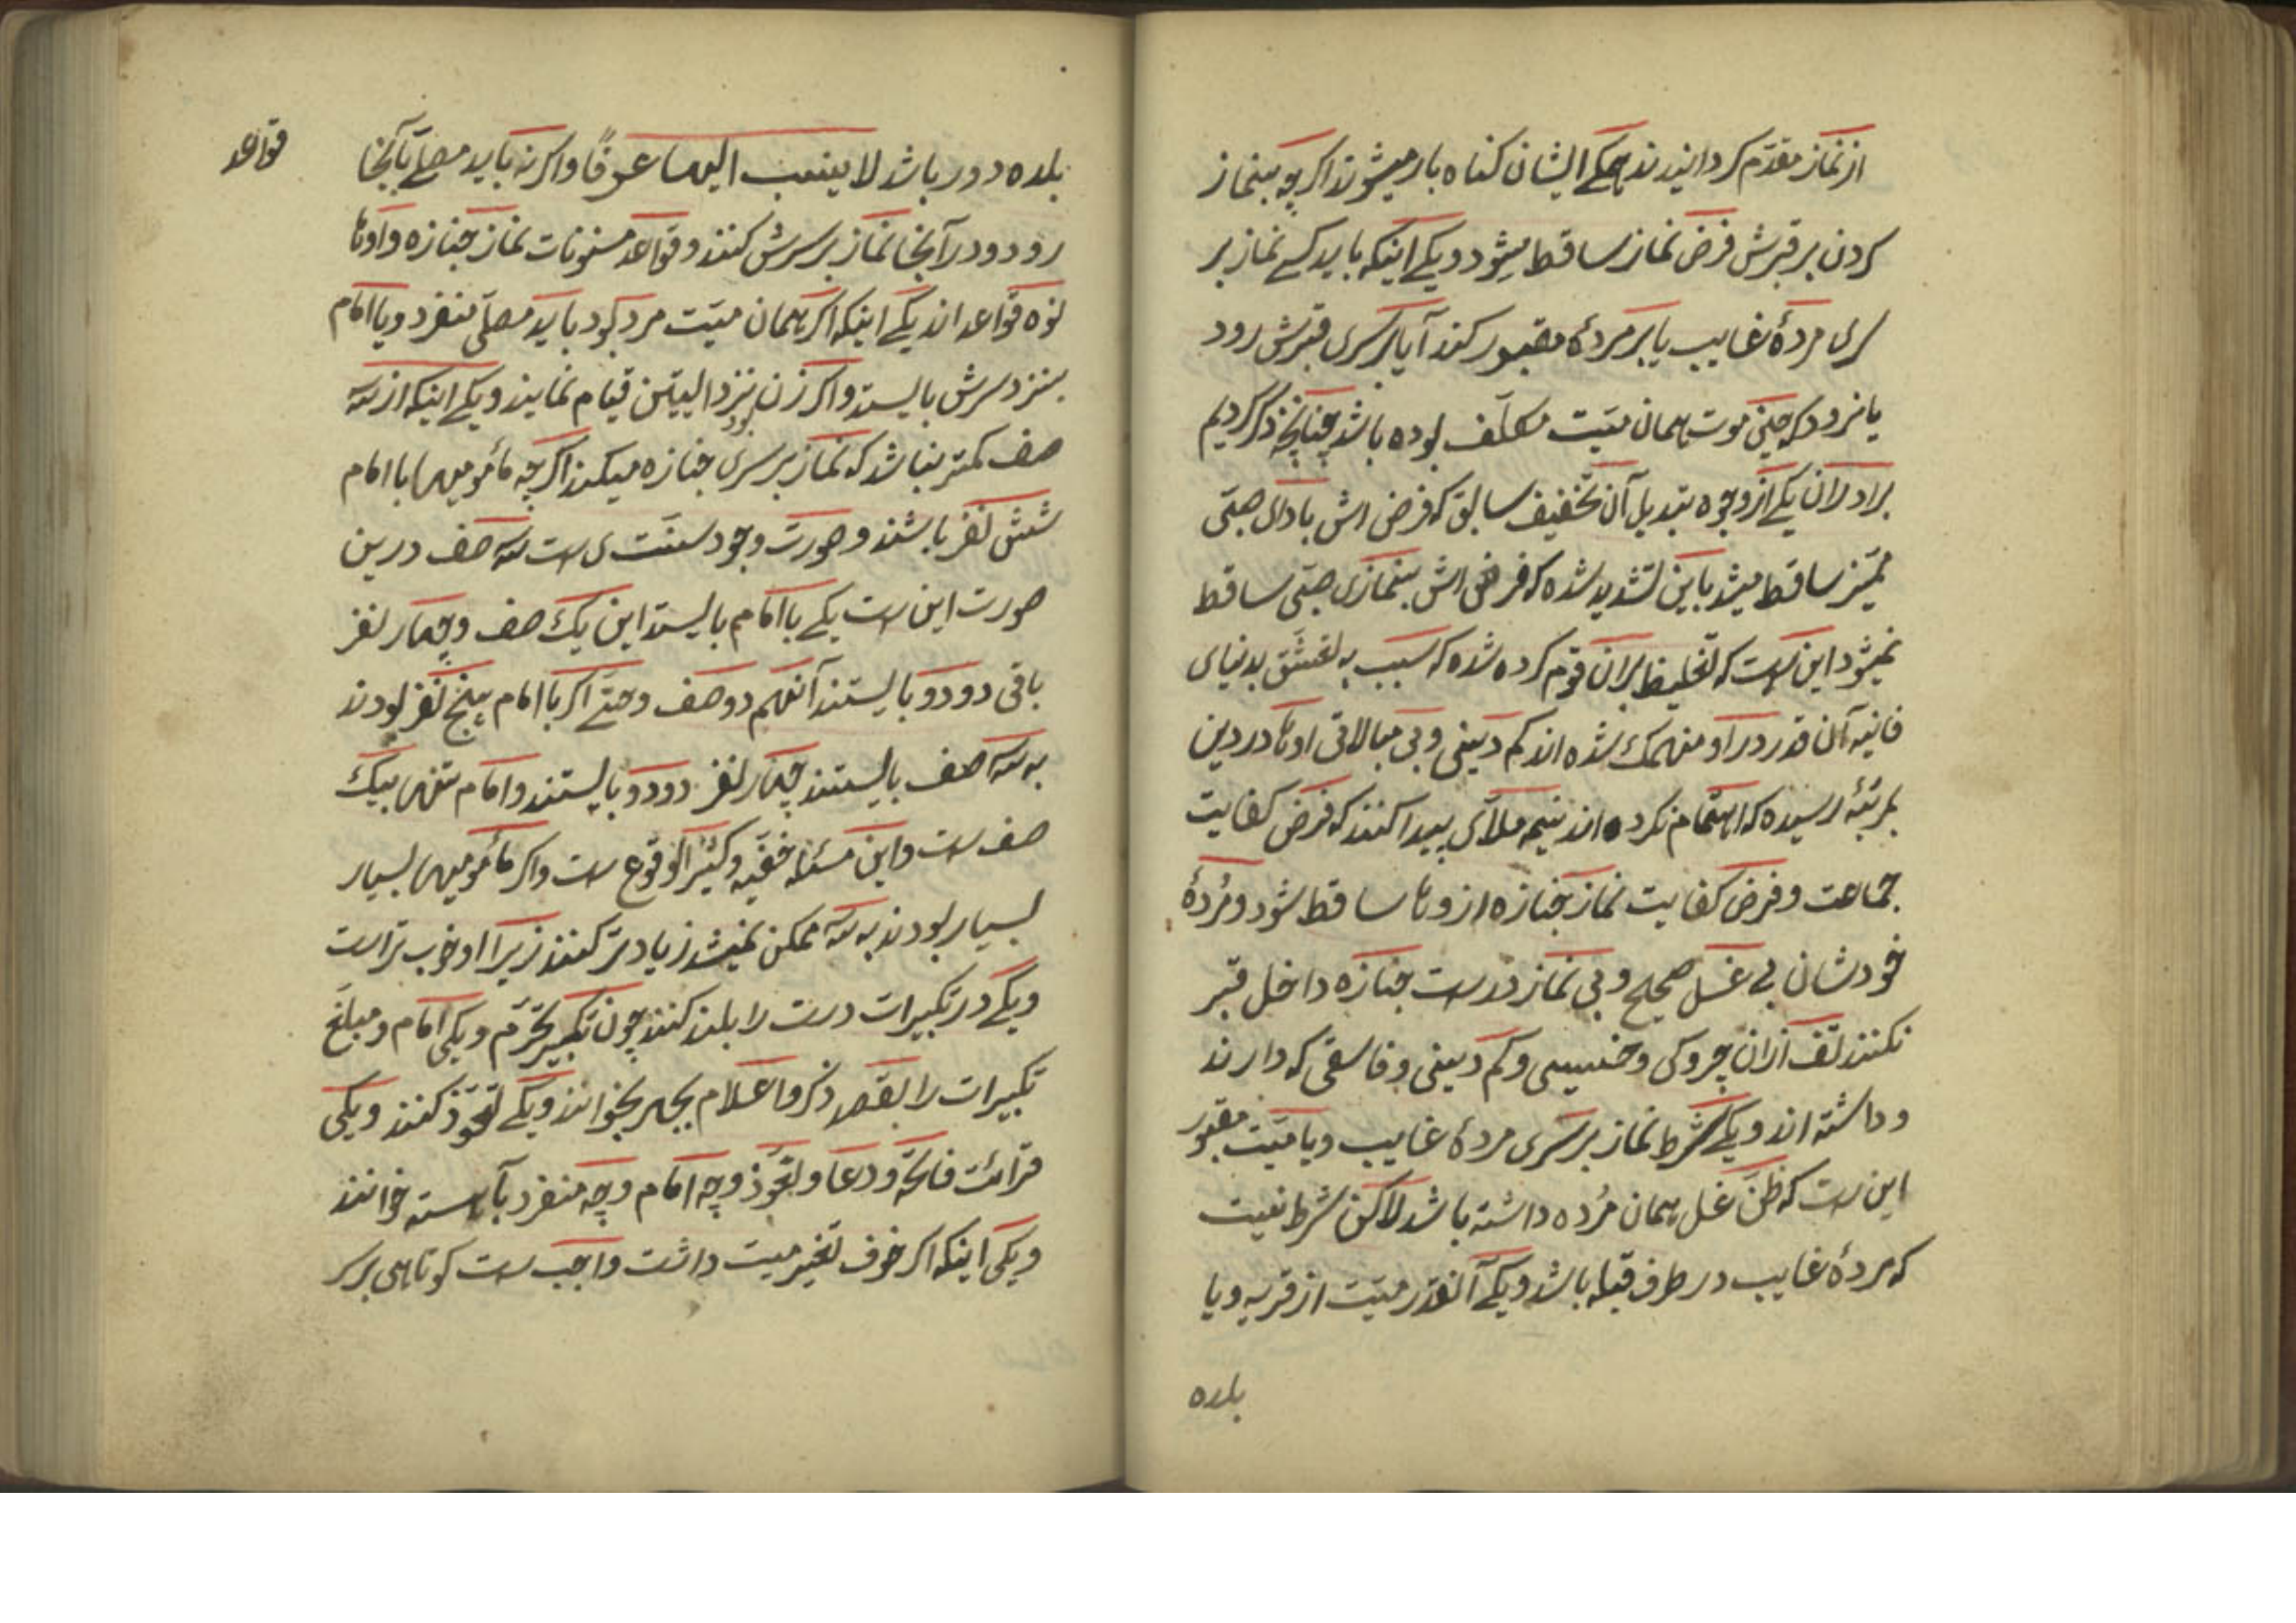 از نماز مقدّم کردانیدند همکی ایشان کناه بار میشوند اکر چه بنماز
کردن بر قبرش فرض نماز ساقط میشود و یکی اینکه باید کسی نماز بر
سری مردهٔ غایب یا بر مردهٔ مقبور کند آیا بر سری قبرش رود
یا نرود که حین موت همان میّت مکلّف بوده باشد چنانچه ذکر کردیم
برادران یکی از وجوه تبدیل آن تخفیف سابق که فرض اش بادای صبّی
ممیّز ساقط میشد باین تشدید شده که فرض اش بنمازی صبّی ساقط
نمیشود این ست که تغلیظ بران قوم کرده شده که سبب به تعشّق بدنیای
فانیه آن قدر در او منهمک شده اند کم دینی و بی مبالاتی اوها در دین
بمرتبهٔ رسیده که اهتمام نکرده اند نیمه ملّای پیدا کنند که فرض کفایت
جماعت و فرض کفایت نماز جنازه از وها ساقط شود و مُردهٔ
خودشان بی غسل صحیح و بی نماز درست جنازه داخل قبر
نکنند تف ازان چروکی و خسیسی و کم دینی و فاسقی که دارند
و داشته اند و یکی شرط نماز بر سری مردهٔ غایب و یا میّت مقبور
این ست که ظنّ غسل همان مُرده داشته باشد لاکن شرط نیست
که مردهٔ غایب در طرف قبله باشد و یکی آنقدر میّت از قریه و یا
بلده
بلده دور باشد لا ینسب الیها عرفًا و اکر نه باید مصلّی بآنجا
قواعد
رود و در آنجا نماز بر سرش کنند و قواعد مسنونات نماز جنازه و اوها
نوه قواعد اند یکی اینکه اکر همان میّت مرد بود باید مصلّی منفرد و یا امام
بنزد سرش بایستد و اکر زن بود نزد الیتین قیام نمایند و یکی اینکه از سه
صف کمتر نباشد که نماز بر سری جنازه میکند اکر چه مأمومیها با امام
شش نفر باشند و صورت وجود سنّت ی ست سه صف در این
صورت این ست یکی با امام بایستد این یک صف و چهار نفر
باقی دو دو بایستند آنهم دو صف و حتّی اکر با امام پنج نفر بودند
به سه صف بایستند چهار نفر دو دو بایستند و امام تنها بیک
صف ست و این مسئله خفیّه و کثیر الوقوع ست و اکر مأمومیها بسیار
بسیار بودند به سه ممکن نمیشد زیادتر کنند زیرا او خوب تر است
و یکی در تکبیرات دست را بلند کنند چون تکبیر تحرّم و یکی امام و مبلّغ
تکبیرات را بقصد ذکر و اعلام بجهر بخوانند و یکی تعوّذ کنند و یکی
قرائت فاتحه و دعا و تعوّذ و چه امام و چه منفرد بآهسته خوانند
و یکی اینکه اکر خوف تغیر میت داشت واجب ست کوتاهی بر